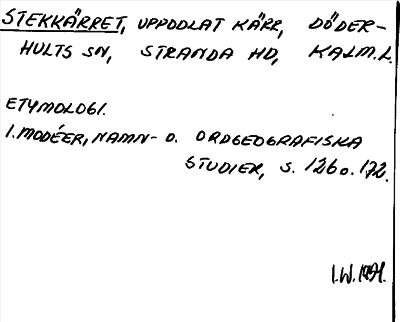 STEKKÄRRET, UPPODLAT KÄRR, DÖDER-
HULTS SN, STRANDA HD, KALM.L.
ETYMOLOGI.
I. MODÉER, NAMN- O. ORDGEOGRAFISKA
STUDIER, S. 126 o. 172.
I.W. 1991.